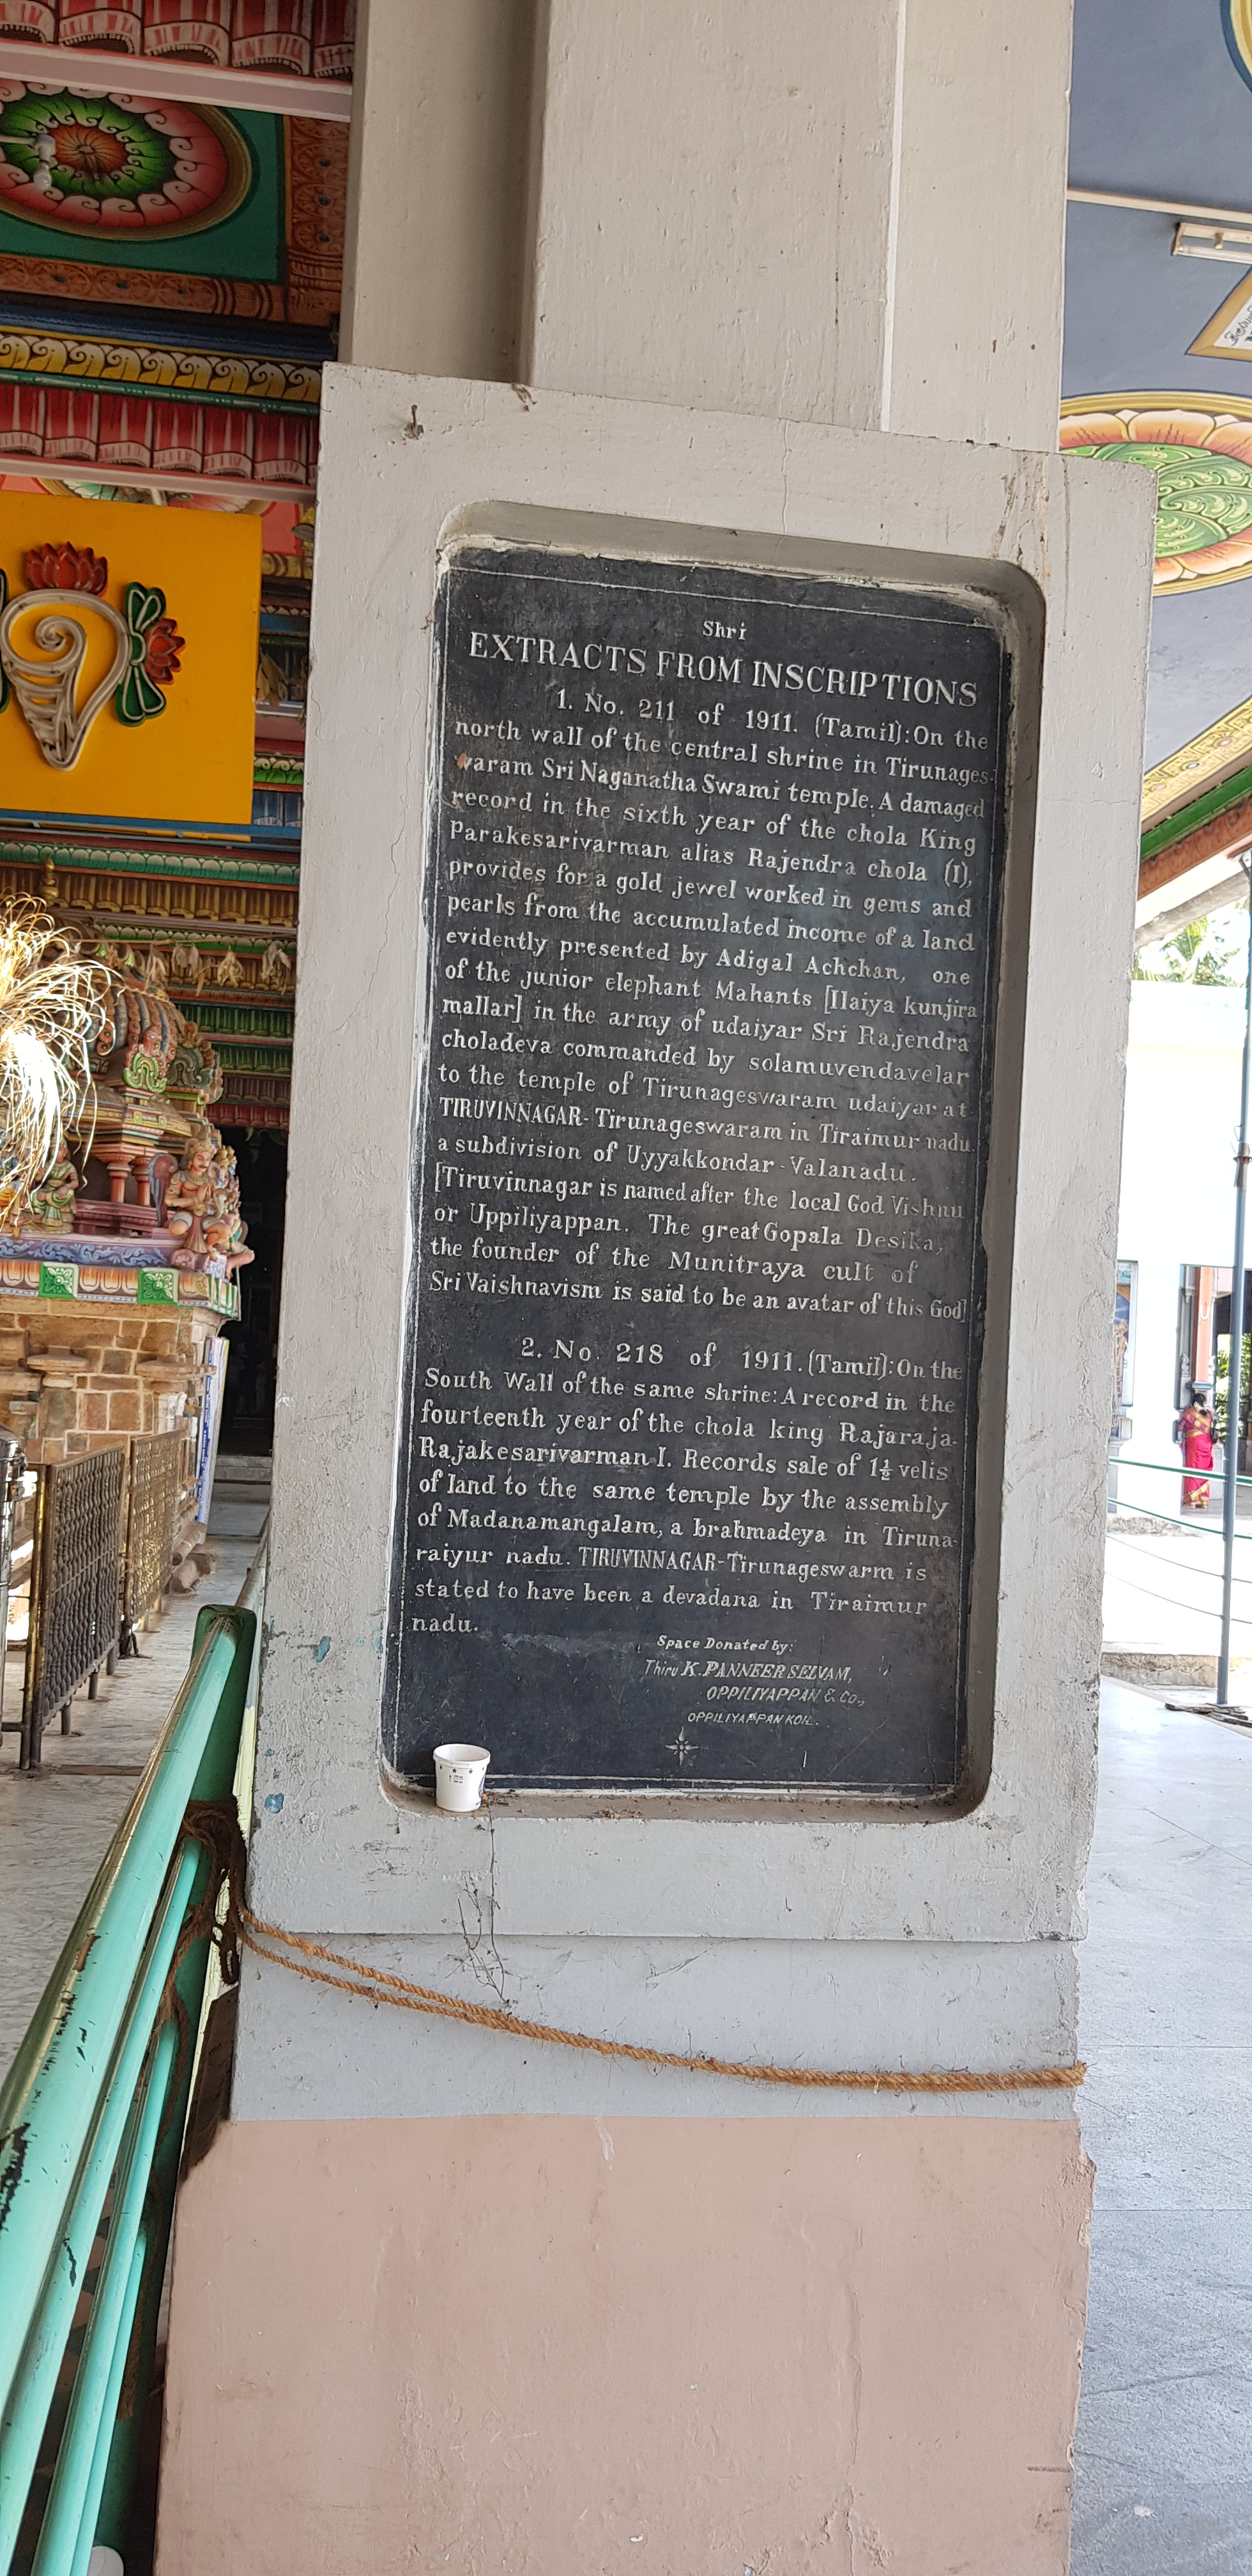 Shri
EXTRACTS FROM INSCRIPTIONS
1. No. 211 of 1911. (Tamil):On the
north wall of the central shrine in Tirunages-
waram Sri Naganatha Swami temple. A damaged
record in the sixth year of the chola King
parakesarivarman alias Rajendra chola (I),
provides for a gold jewel worked in gems and
pearls from the accumulated income of a land
evidently presented by Adigal Achchan, one
of the junior elephant Mahants [Ilaiya kunjira
mallar] in the army of udaiyar Sri Rajendra
choladeva commanded by solamuvendavelar
to the temple of Tirunageswaram udaiyar at
TIRUVINNAGAR-Tirunageswaram in Tiraimur nadu.
a subdivision of Uyyakkondar-Valanadu.
[Tiruvinnagar is named after the local God Vishnu
or Uppiliyappan. The great Gopala Desika,
the founder of the Munitraya cult of
Sri Vaishnavism is said to be an avatar of this God]
2. No. 218 of 1911. (Tamil):On the
South Wall of the same shrine: A record in the
fourteenth year of the chola king Rajaraja-
Rajakesarivarman I. Records sale of 1½ velis
of land to the same temple by the assembly
of Madanamangalam, a brahmadeya in Tiruna-
raiyur nadu. TIRUVINNAGAR-Tirunageswarm is
stated to have been a devadana in Tiraimur
nadu.
Space Donated by:
Thiru K. PANNEER SELVAM,
OPPILIYAPPAN & Co.,
OPPILIYAPPAN KOIL.